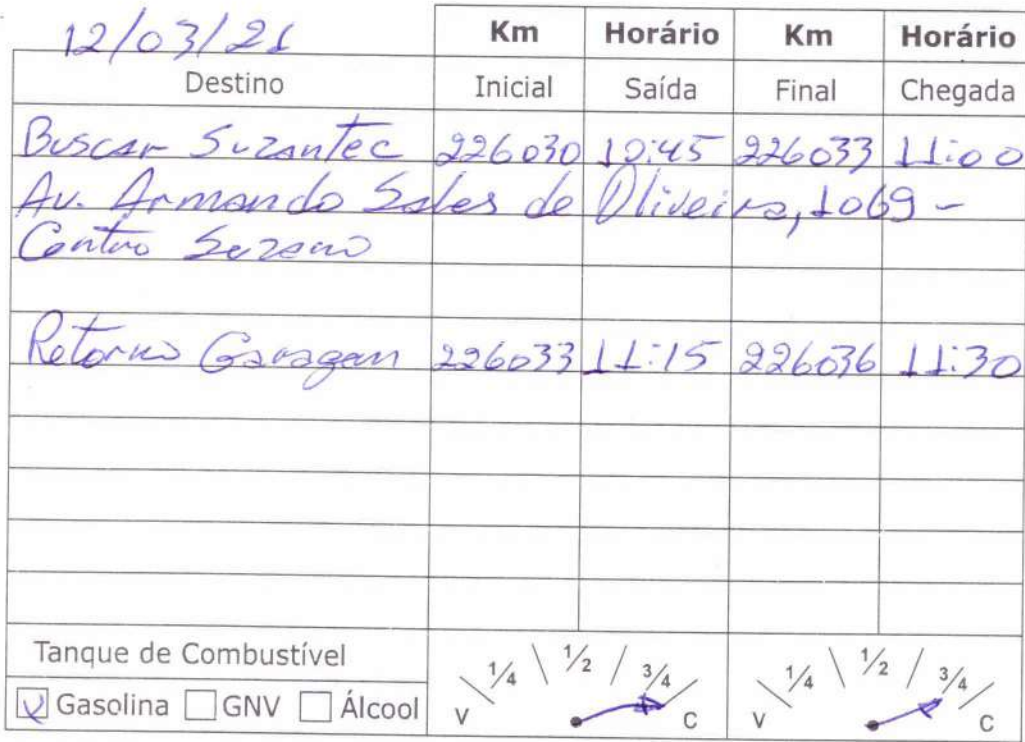 12/03/21 Km Horário Km Horário
Destino Inicial Saída Final Chegada
Buscar Suzantec 226030 10:45 226033 11:00
Av. Armando Sales de Oliveira, 1069 -
Centro Suzano
Retorno Garagem 226033 11:15 226036 11:30
Tanque de Combustível
1/4 1/2 3/4 1/4 1/2 3/4
Gasolina GNV Álcool V C V C